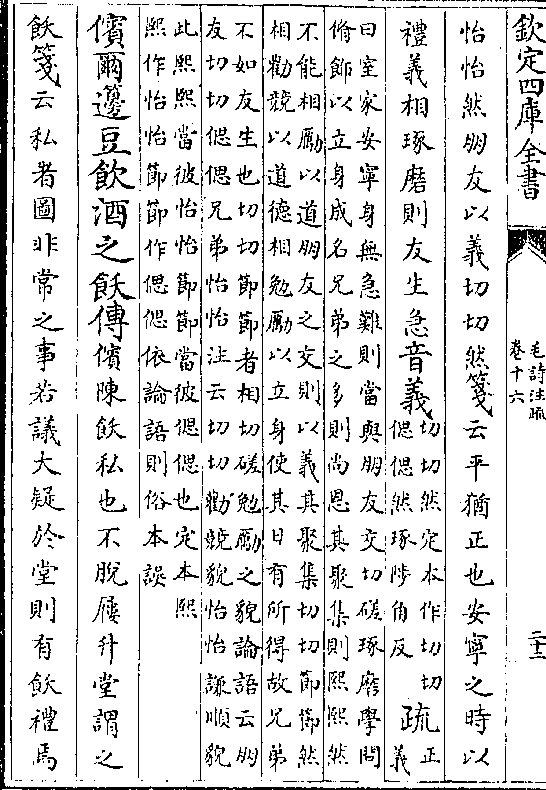 欽定四庫全書
毛詩注疏
卷十六
二十二
怡怡然朋友以義切切然箋云平猶正也安寧之時以
禮義相琢磨則友生急音義
切切然定本作切切
偲偲然琢陟角反
疏
正
義
曰室家安寧身無急難則當與朋友交切磋琢磨學問
脩飾以立身成名兄弟之多則尚恩其聚集則熙熙然
不能相勵以道朋友之交則以義其聚集切切節節然
相勸競以道德相勉勵以立身使其日有所得故兄弟
不如友生也切切節節者相切磋勉勵之貌論語云朋
友切切偲偲兄弟怡怡注云切切勸競貌怡怡謙順貌
此熙熙當彼怡怡節節當彼偲偲也定本熙
熙作怡怡節節作偲偲依論語則俗本誤
儐爾籩豆飲酒之飫傳儐陳飫私也不脫屨升堂謂之
飫箋云私者圖非常之事若議大疑於堂則有飫禮焉